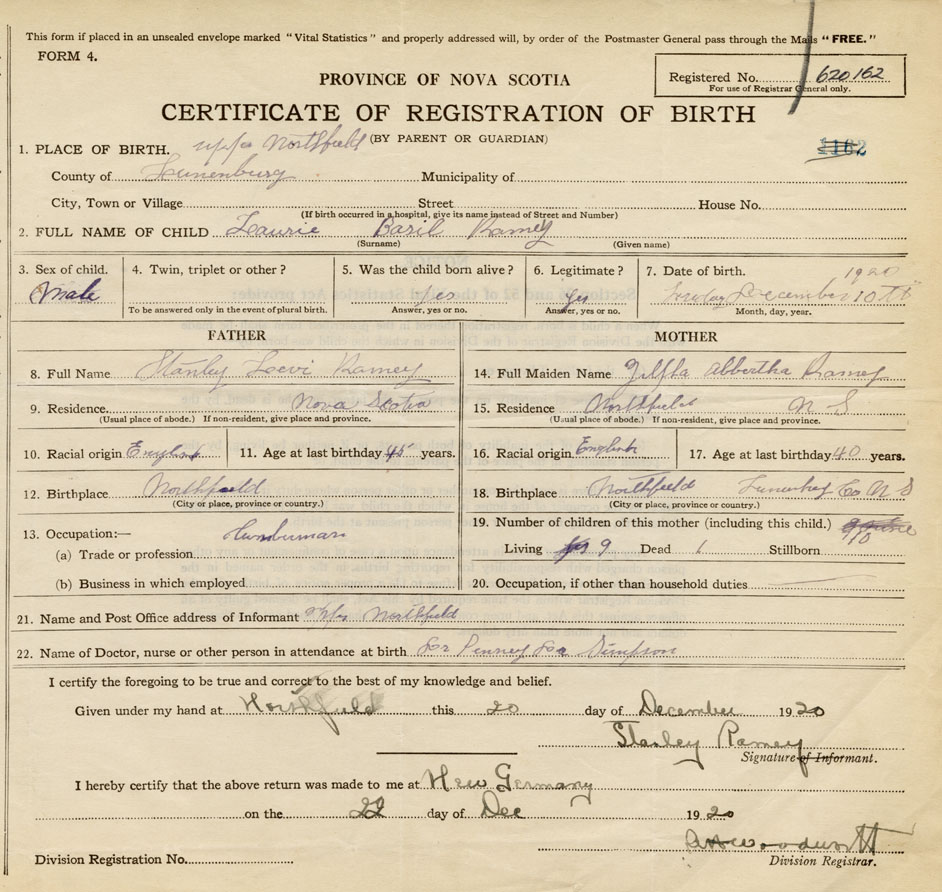 This form if placed in an unsealed envelope marked "Vital Statistics" and properly addressed will, by order of the Postmaster General pass through the Mails "FREE."
FORM 4.
PROVINCE OF NOVA SCOTIA
Registered No. 620162
For use of Registrar General only.
CERTIFICATE OF REGISTRATION OF BIRTH
(BY PARENT OR GUARDIAN)
1. PLACE OF BIRTH. Northfield
1162
County of Lunenburg Municipality of
City, Town or Village Street House No.
(If birth occurred in a hospital, give its name instead of Street and Number)
2. FULL NAME OF CHILD Laurie Basil Ramey
(Surname) (Given name)
3. Sex of child. 4. Twin, triplet or other? 5. Was the child born alive? 6. Legitimate? 7. Date of birth. 1920
Male yes yes December 10th
To be answered only in the event of plural birth. Answer, yes or no. Answer, yes or no. Month, day, year.
FATHER MOTHER
8. Full Name Stanley Levi Ramey 14. Full Maiden Name Abbertha Ramey
9. Residence Nova Scotia 15. Residence Northfield N S
(Usual place of abode.) If non-resident, give place and province. (Usual place of abode.) If non-resident, give place and province.
10. Racial origin English 11. Age at last birthday 45 years. 16. Racial origin English 17. Age at last birthday 40 years.
12. Birthplace Northfield 18. Birthplace Northfield Lunenburg Co N S
(City or place, province or country.) (City or place, province or country.)
13. Occupation:— Lumberman 19. Number of children of this mother (including this child.) 10
(a) Trade or profession Living 9 Dead 1 Stillborn
(b) Business in which employed 20. Occupation, if other than household duties
21. Name and Post Office address of Informant Northfield
22. Name of Doctor, nurse or other person in attendance at birth Dr Penney Dr Simpson
I certify the foregoing to be true and correct to the best of my knowledge and belief.
Given under my hand at Northfield this 20 day of December 1920
Stanley Ramey
Signature of Informant.
I hereby certify that the above return was made to me at New Germany
on the 22 day of Dec 1920
Division Registration No. Division Registrar.